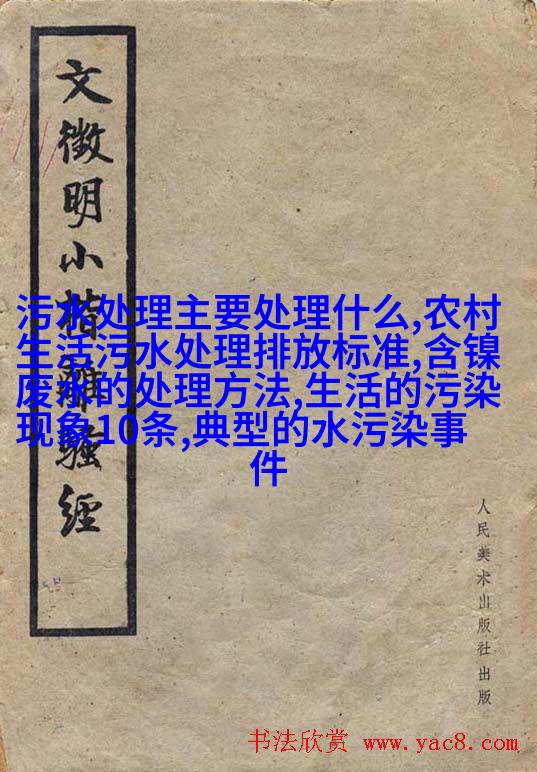 文徵明小楷離騷經
污水处理主要处理什么,农村
生活污水处理排放标准,含镍
废水的处理方法,生活的污染
现象10条,典型的水污染事
件
人民美术出版社出版
书法欣赏 www.yac8.com